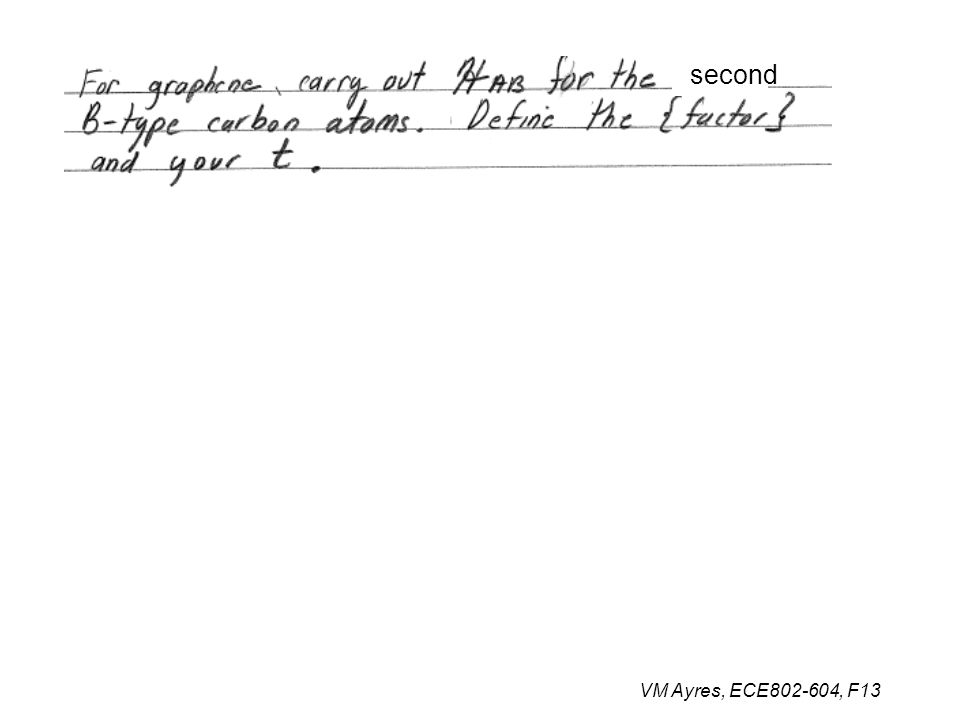 For graphene, carry out H_AB for the second
B-type carbon atoms. Define the {factor}
and your t.
VM Ayres, ECE802-604, F13